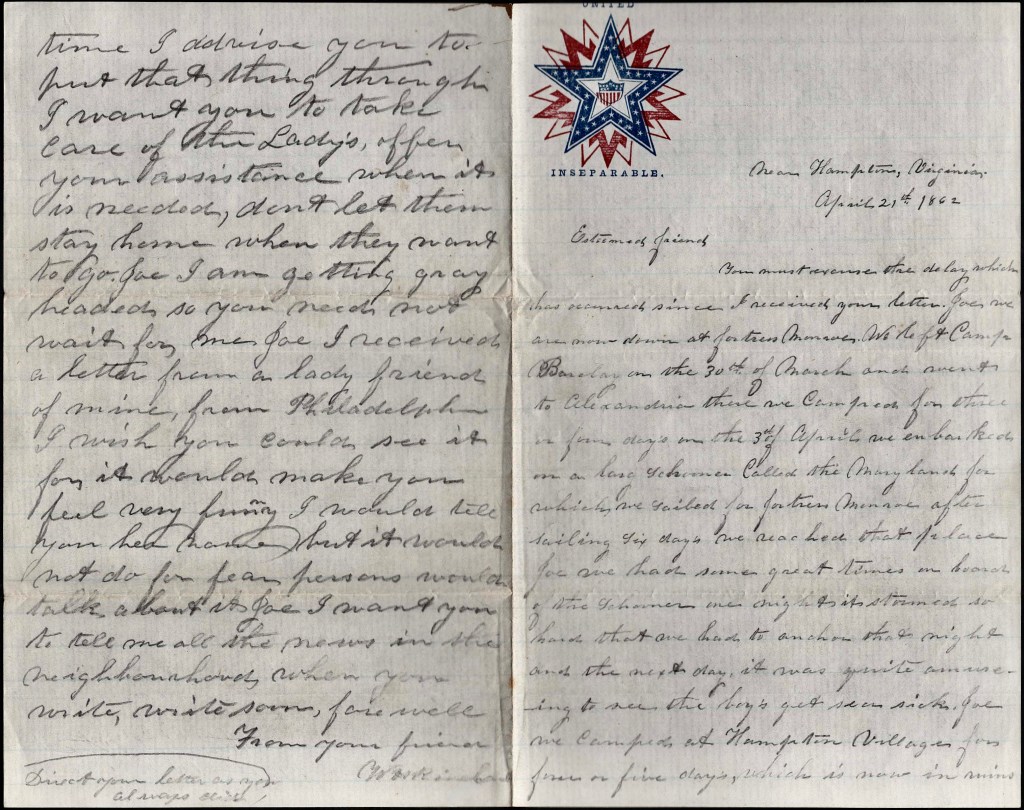 time I advise you to
put that thing through
I want you to take
care of the Lady's, offer
your assistance when it
is needed, dont let them
stay home when they want
to go. Joe I am getting gray
headed so you need not
wait for me Joe I received
a letter from a lady friend
of mine, from Philadelphi
I wish you could see it
for it would make you
feel very funny I would tell
you her name) but it would
not do for fear persons would
talk about it Joe I want you
to tell me all the news in the
neighbourhood, when you
write, write soon, fare well
From your friend
Direct your letter as you
always did
UNITED
INSEPARABLE.
Near Hampton, Virginia.
April 21th 1862
Esteemed friend
You must excuse the delay which
has occured since I received your letter. Joe, we
are now down at fortress Monroe. We left Camp
Barclay on the 30th of March and went
to Alexandria there we Camped for three
or four day's on the 3rd of April we enbarked
on a large Schoner Called the Maryland for
which, we sailed for fortress Monroe after
sailing six day's we reached that place
Joe we had some great times on board
of the Schoner one night it stormed so
hard that we had to anchor that night
and the next day, it was quite amuse-
ing to see the boy's get sea sick. Joe
we Camped at Hampton Villages for
four or five day's, which is now in ruins